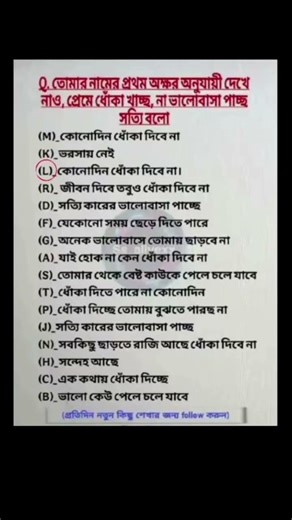 Q. তোমার নামের প্রথম অক্ষর অনুযায়ী দেখে
নাও, প্রেমে ধোঁকা খাচ্ছ, না ভালোবাসা পাচ্ছ
সত্যি বলো
(M)_কোনোদিন ধোঁকা দিবে না
(K)_ভরসায় নেই
(L)_কোনোদিন ধোঁকা দিবে না।
(R)_ জীবন দিবে তবুও ধোঁকা দিবে না
(D)_সত্যি কারের ভালোবাসা পাচ্ছে
(F)_যেকোনো সময় ছেড়ে দিতে পারে
(G)_অনেক ভালোবাসে তোমায় ছাড়বে না
(A)_যাই হোক না কেন ধোঁকা দিবে না
(S)_তোমার থেকে বেষ্ট কাউকে পেলে চলে যাবে
(T)_ধোঁকা দিতে পারে না কোনোদিন
(P)_ধোঁকা দিচ্ছে তোমায় বুঝতে পারছ না
(J)_সত্যি কারের ভালোবাসা পাচ্ছ
(N)_সবকিছু ছাড়তে রাজি আছে ধোঁকা দিবে না
(H)_সন্দেহ আছে
(C)_এক কথায় ধোঁকা দিচ্ছে
(B)_ভালো কেউ পেলে চলে যাবে
(প্রতিদিন নতুন কিছু শেখার জন্য follow করুন)